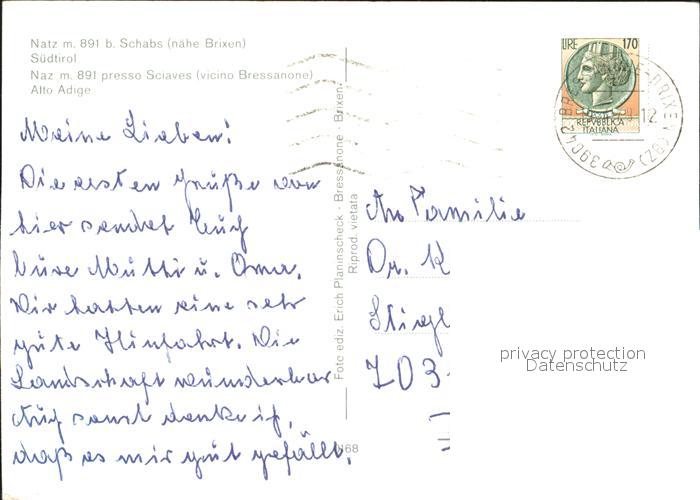 Natz m. 891 b. Schabs (nähe Brixen)
Südtirol
Naz m. 891 presso Sciaves (vicino Bressanone)
Alto Adige
Meine Lieben!
Die ersten Grüße von
hier sendet Euch
Eure Mutti u. Oma.
Wir hatten eine sehr
gute Hinfahrt. Die
Landschaft wunderbar
Auf sonst denke ich,
daß es mir gut gefällt.
Foto ediz. Erich Planinscheck - Bressanone - Brixen
Riprod. vietata
168
LIRE 170
REPVBBLICA
ITALIANA
39042 BR E-BRIXEN (BZ)
12
An Familie
Dr. K
703
privacy protection
Datenschutz